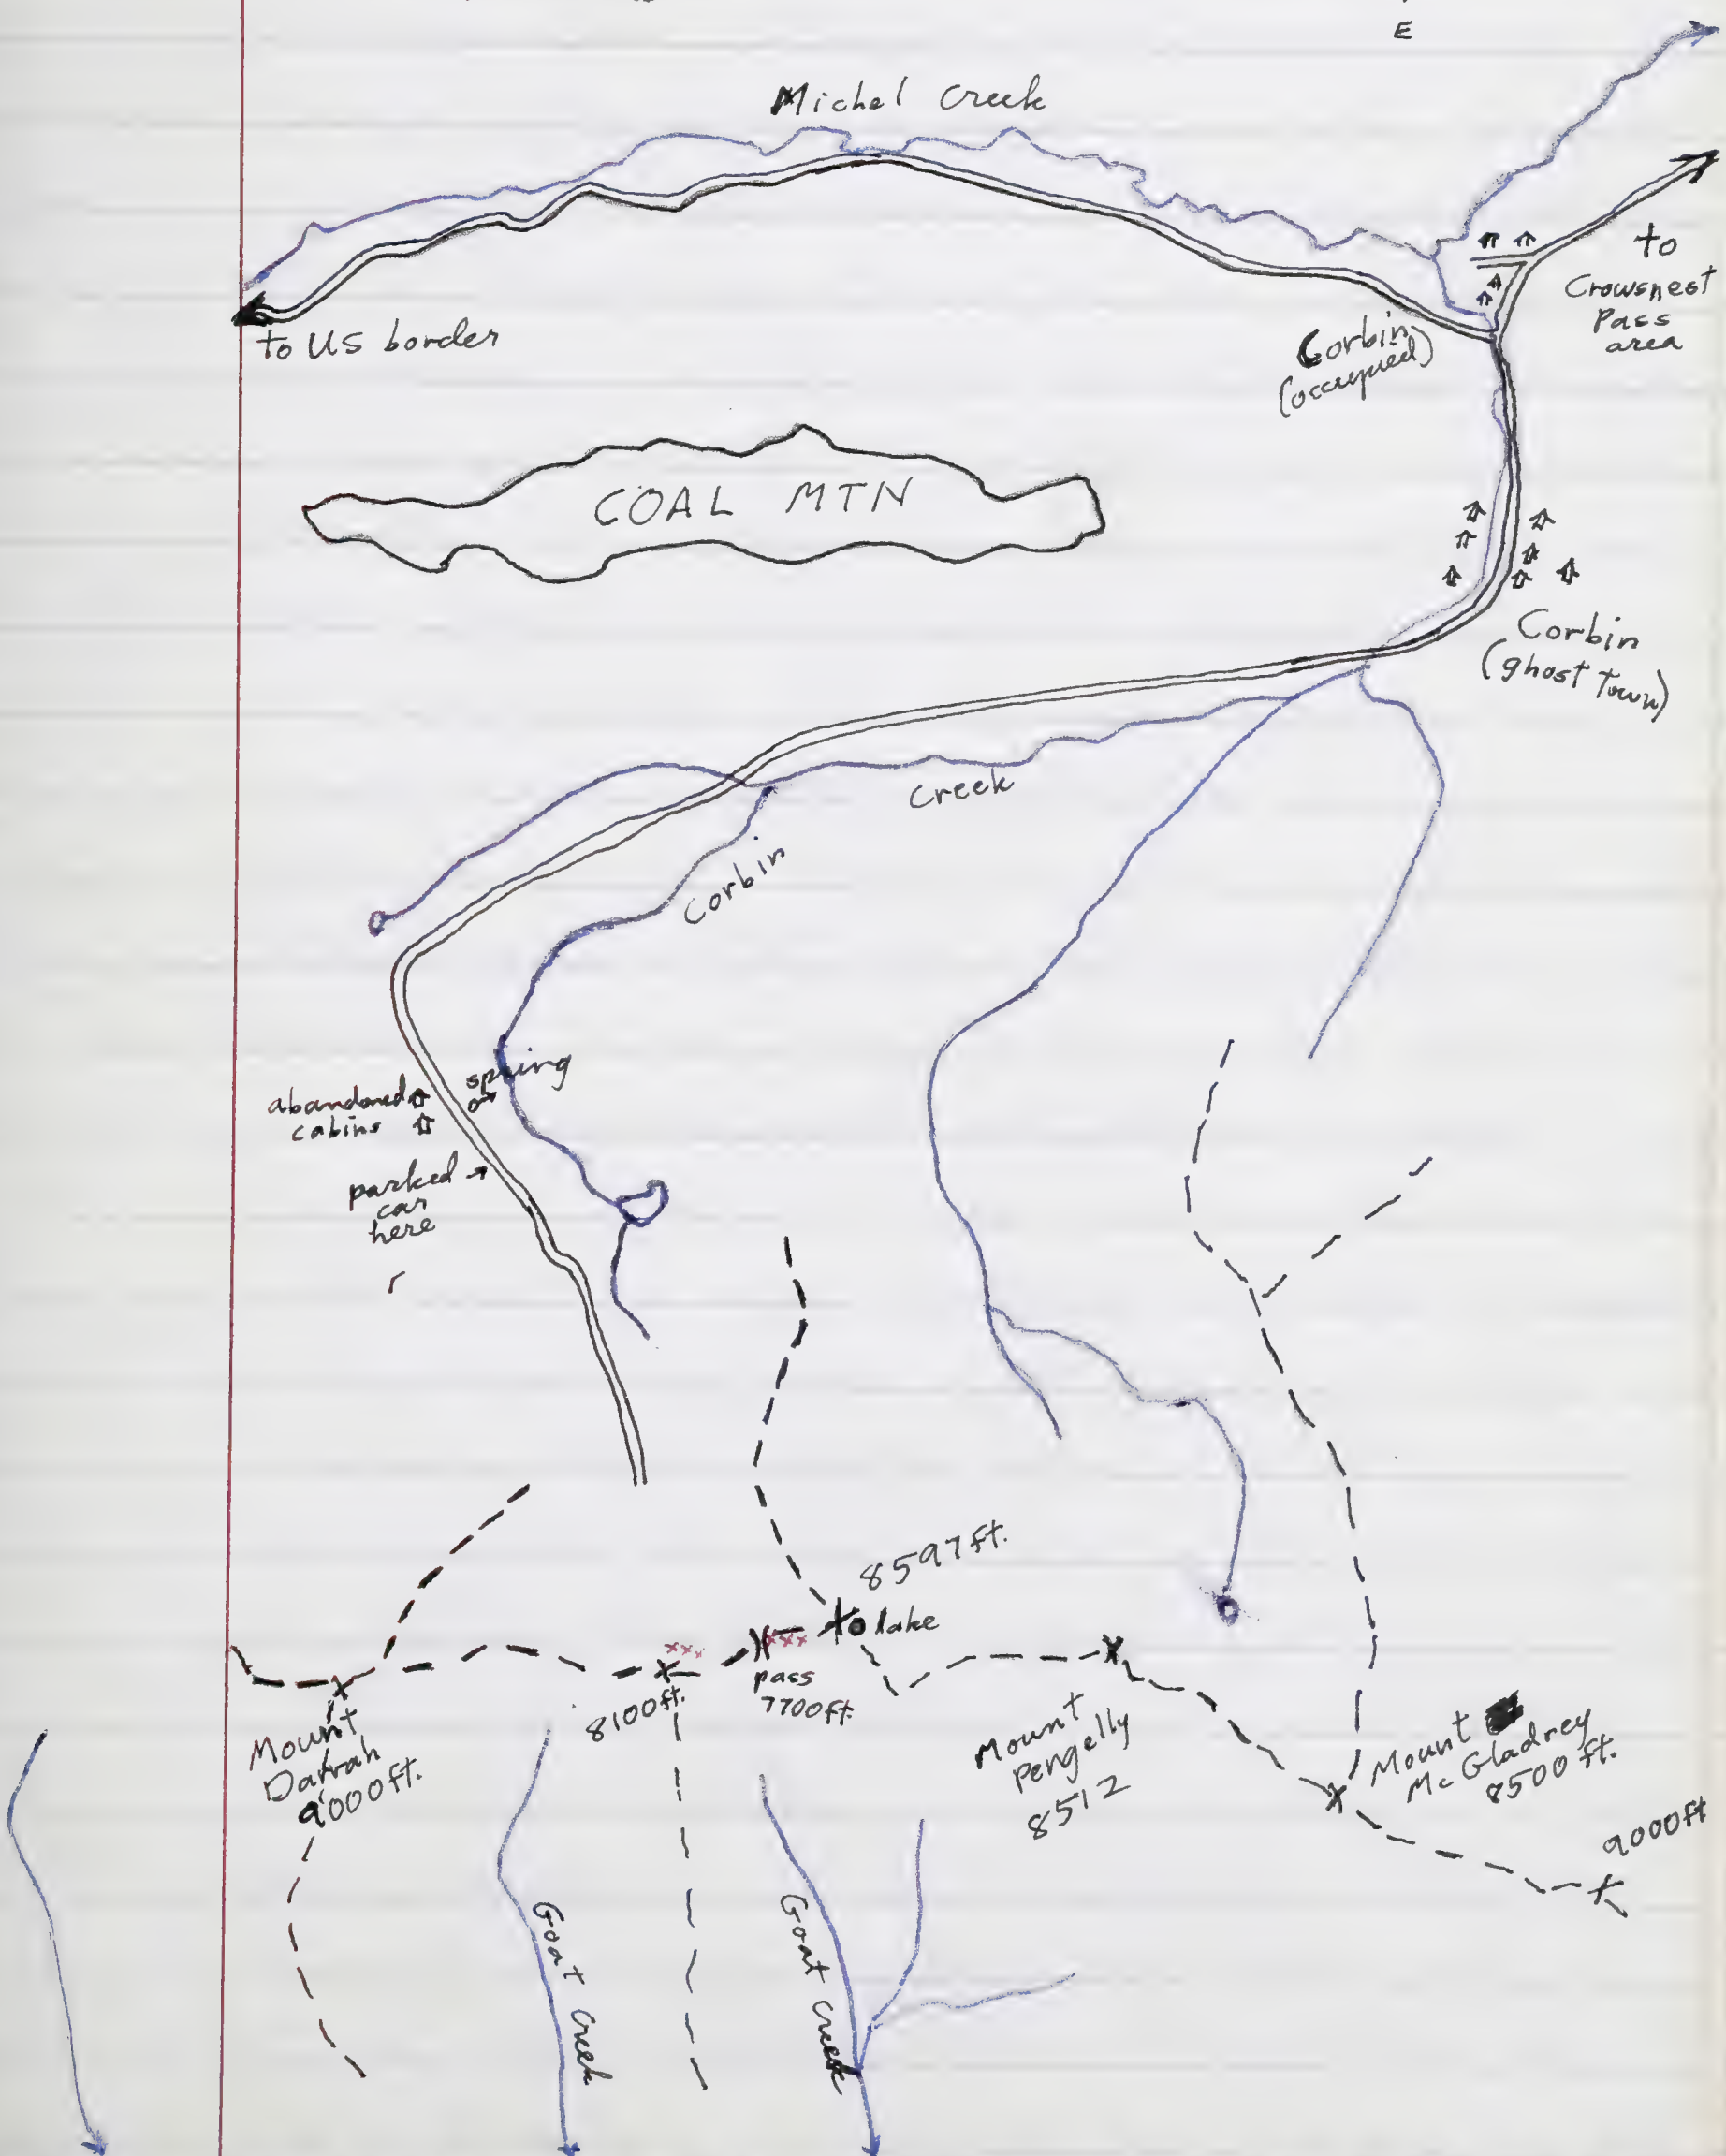 E
Michel Creek
to
Crowsnest
Pass
area
to US border
Corbin
(occupied)
COAL MTN
Corbin
(ghost town)
Creek
Corbin
spring
abandoned
cabins
parked
car
here
8597 ft.
lake
pass
7700 ft.
8100 ft.
Mount
Darrah
9000 ft.
Mount
Pengelly
8512
Mount
McGladrey
8500 ft.
9000 ft
Goat Creek
Goat Creek